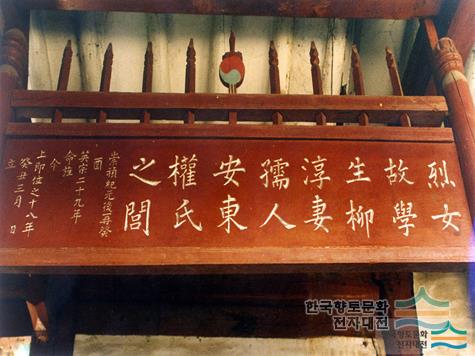 烈女
故學
生柳
淳妻
孺人
安東
權氏
之閭
崇禎紀元後再癸
酉
英宗二十九年
命旌
今
上卽位之十八年
癸丑三月 日
立
한국향토문화
전자대전
향토문화
전자대전